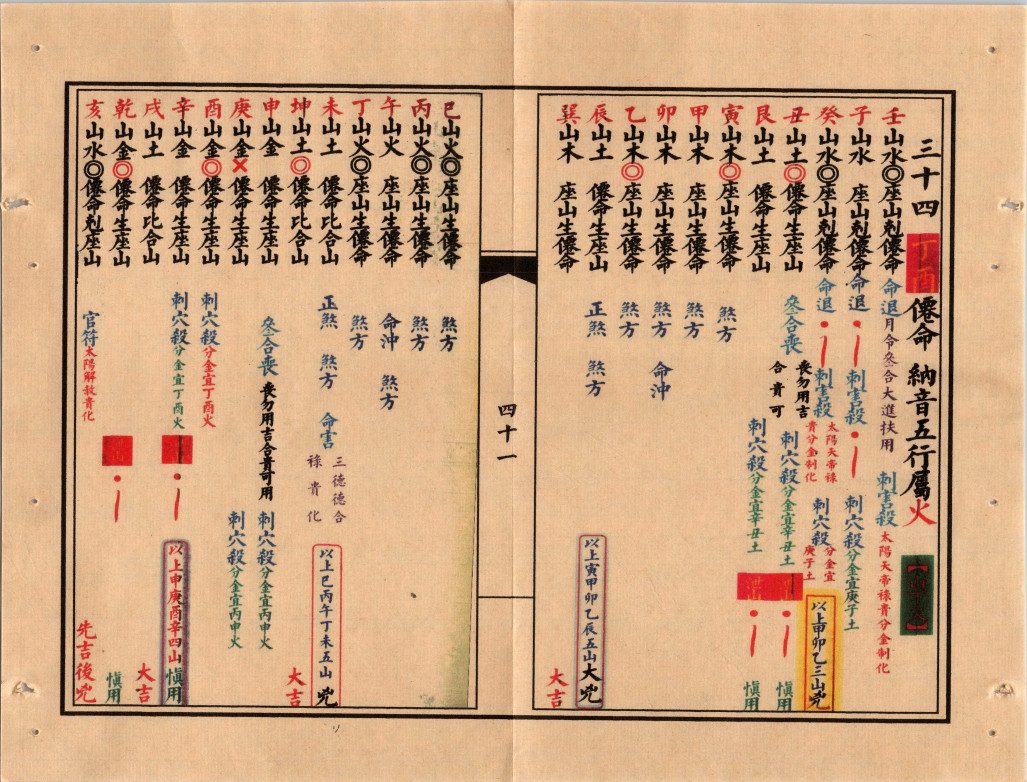 三十四 丁酉 僊命 納音五行屬火
壬山水◎座山剋僊命 命退 月令叅合大進扶用 刺害殺 太陽天帝祿貴分金制化
子山水 座山剋僊命 命退 刺害殺 刺穴殺 分金宜庚子土
癸山水◎座山剋僊命 命退 刺害殺 太陽天帝祿貴分金制化 刺穴殺 分金宜庚子土 以上甲卯乙三山兇
丑山土◎僊命生座山 叅合喪 喪勿用吉合貴可 刺穴殺 分金宜辛丑土 慎用
艮山土 僊命生座山 刺穴殺 分金宜辛丑土 慎用
寅山木◎座山生僊命 煞方
甲山木 座山生僊命 煞方
卯山木 座山生僊命 煞方 命沖
乙山木◎座山生僊命 煞方
辰山土 僊命生座山 正煞 煞方 以上寅甲卯乙辰五山大兇
巽山木 座山生僊命 大吉
四十一
巳山火◎座山生僊命 煞方
丙山火◎座山生僊命 煞方
午山火 座山生僊命 命沖 煞方
丁山火◎座山生僊命 煞方
未山土 僊命比合山 正煞 煞方 命害 三德德合祿貴化 以上巳丙午丁未五山 兇
坤山土◎僊命比合山 大吉
申山金 僊命生座山 叅合喪 喪勿用吉合貴可用 刺穴殺 分金宜丙申火
庚山金×僊命生座山 刺穴殺 分金宜丙申火
酉山金◎僊命生座山 刺穴殺 分金宜丁酉火
辛山金 僊命生座山 刺穴殺 分金宜丁酉火 以上申庚酉辛四山 慎用
戌山土 僊命比合山 大吉
乾山金◎僊命生座山 慎用
亥山水◎僊命剋座山 官符 太陽解赦貴化 先吉後兇